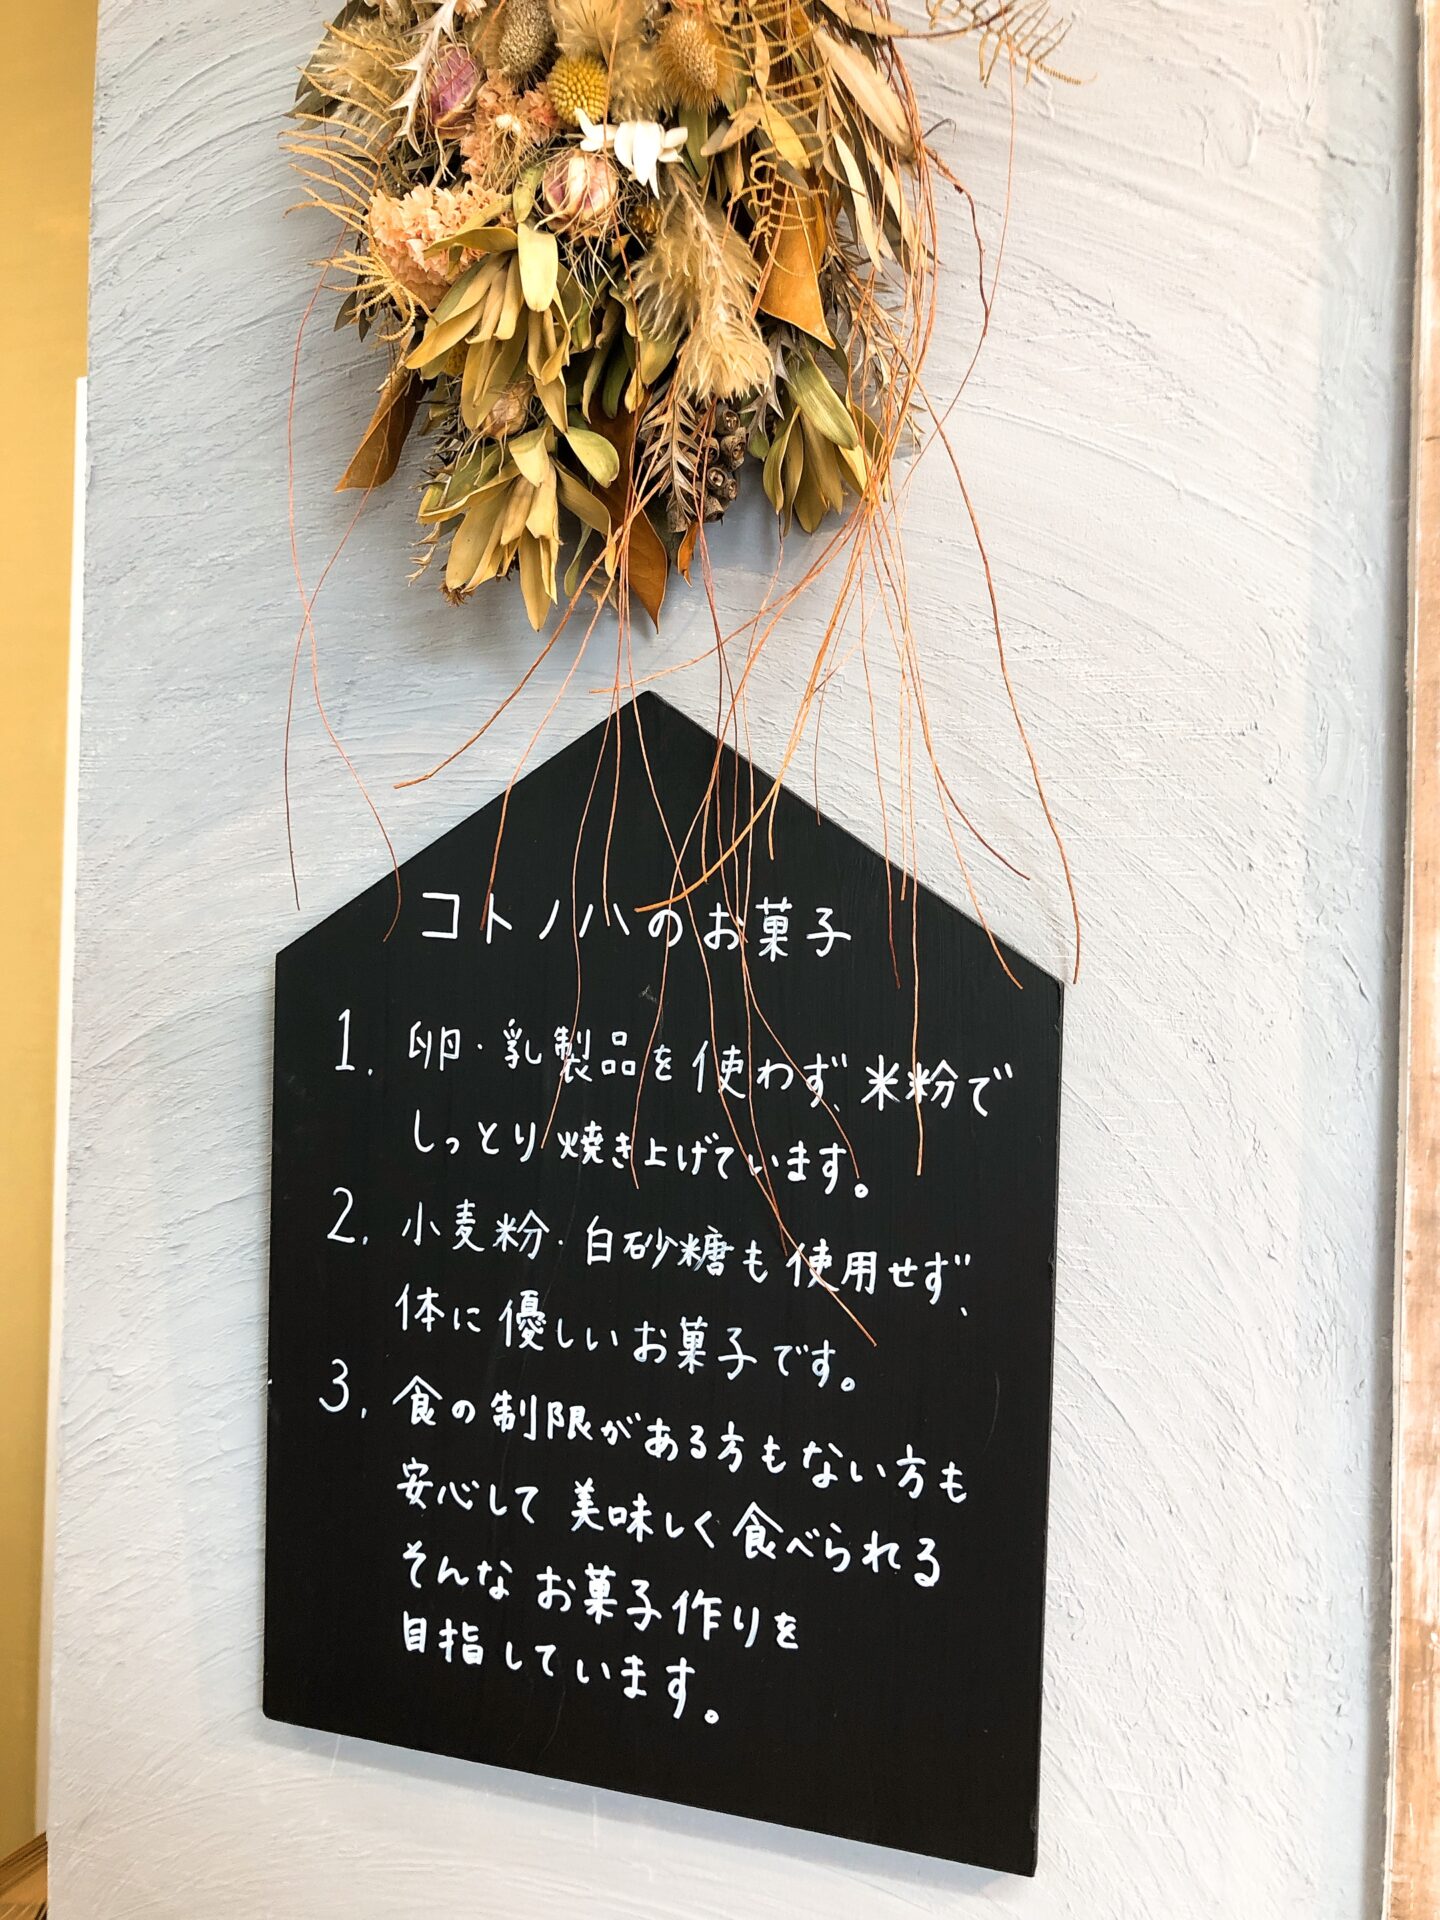 コトノハのお菓子
1. 卵・乳製品を使わず、米粉で
しっとり焼き上げています。
2. 小麦粉・白砂糖も使用せず、
体に優しいお菓子です。
3. 食の制限がある方もない方も
安心して美味しく食べられる
そんなお菓子作りを
目指しています。